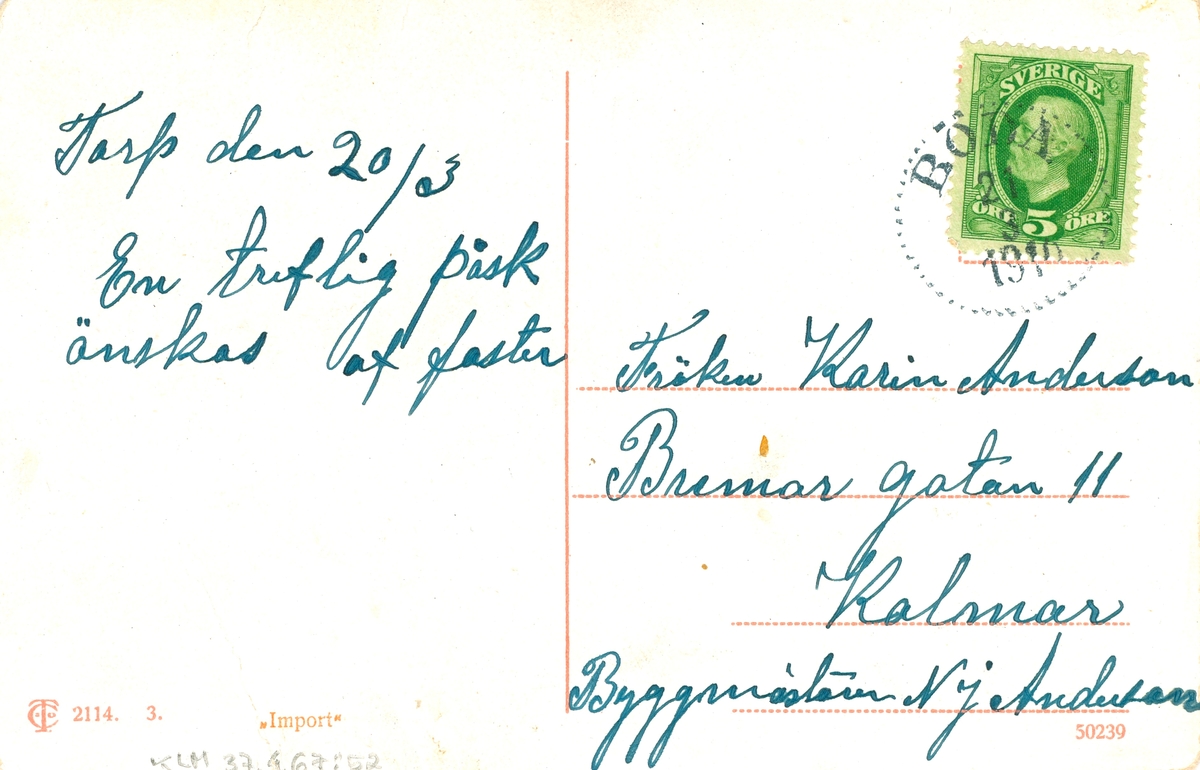 Torp den 20/3
En treflig påsk
önskas af faster
SVERIGE
ÖRE 5 ÖRE
BÖDA
21
3
1910
Fröken Karin Anderson
Bremar gatan 11
Kalmar
Byggmästaren N J Anderson
2114. 3.
„Import“
50239